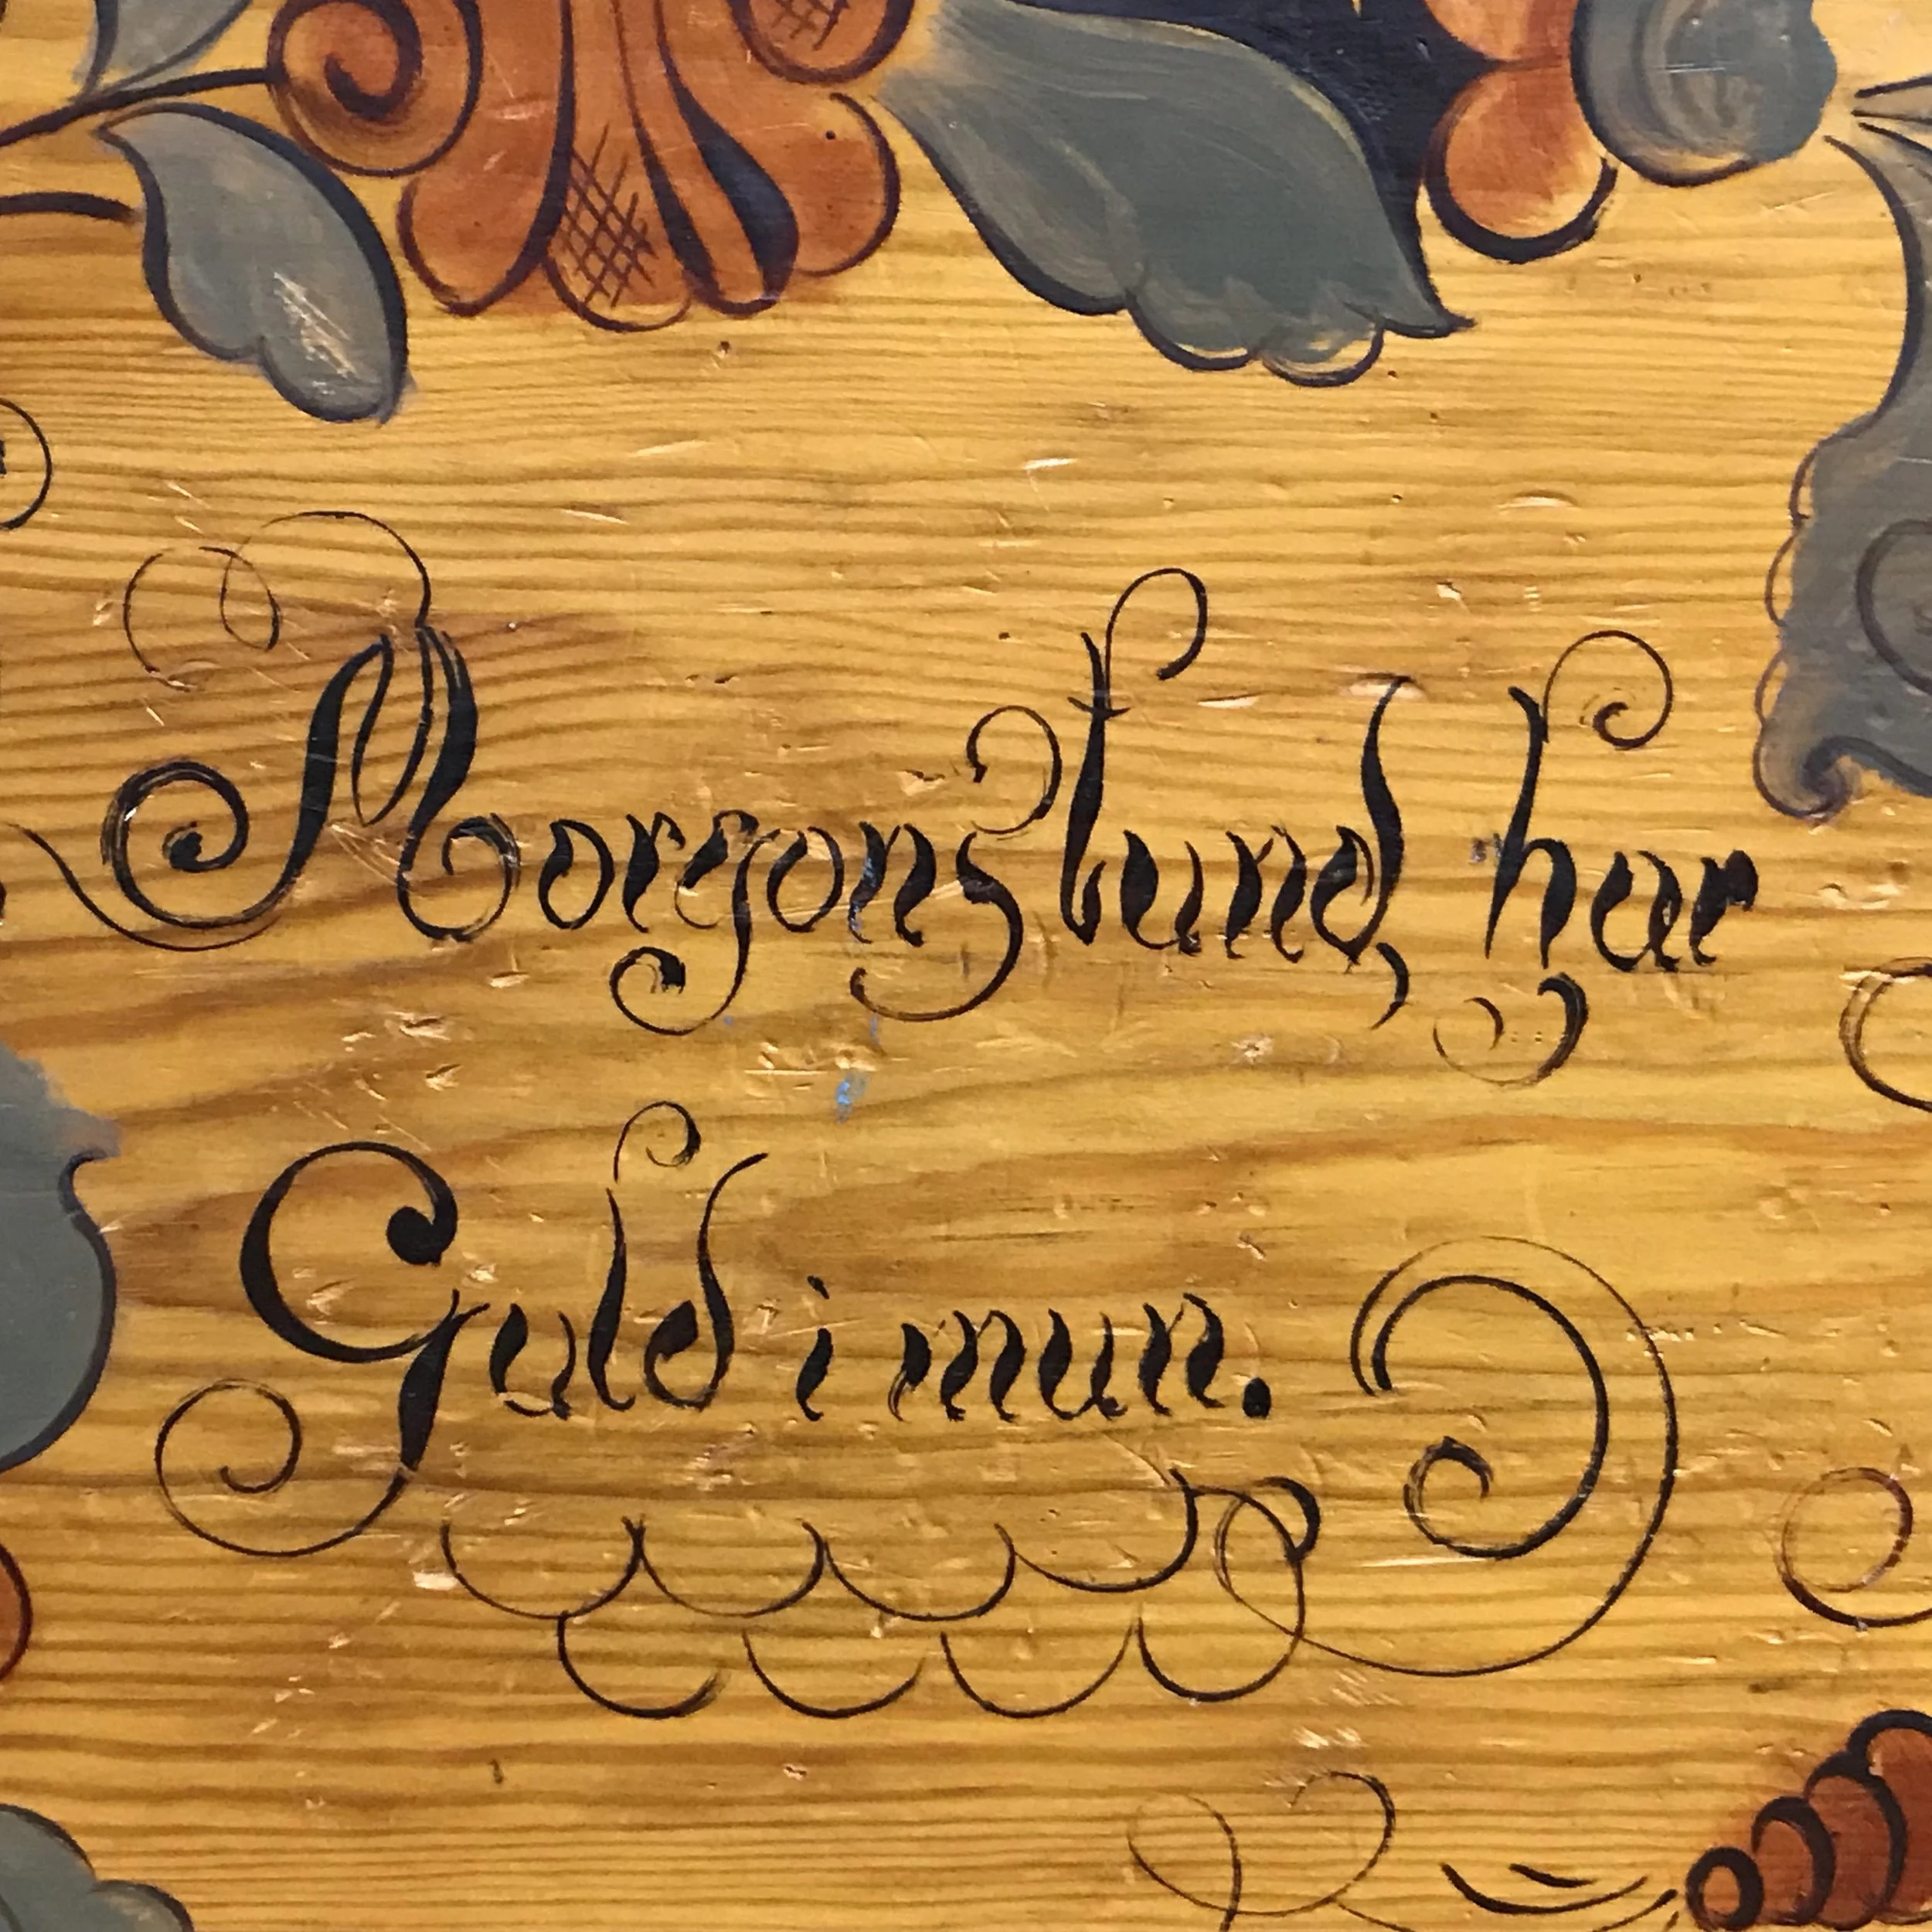 Morgonstund, har
Guld i mun.